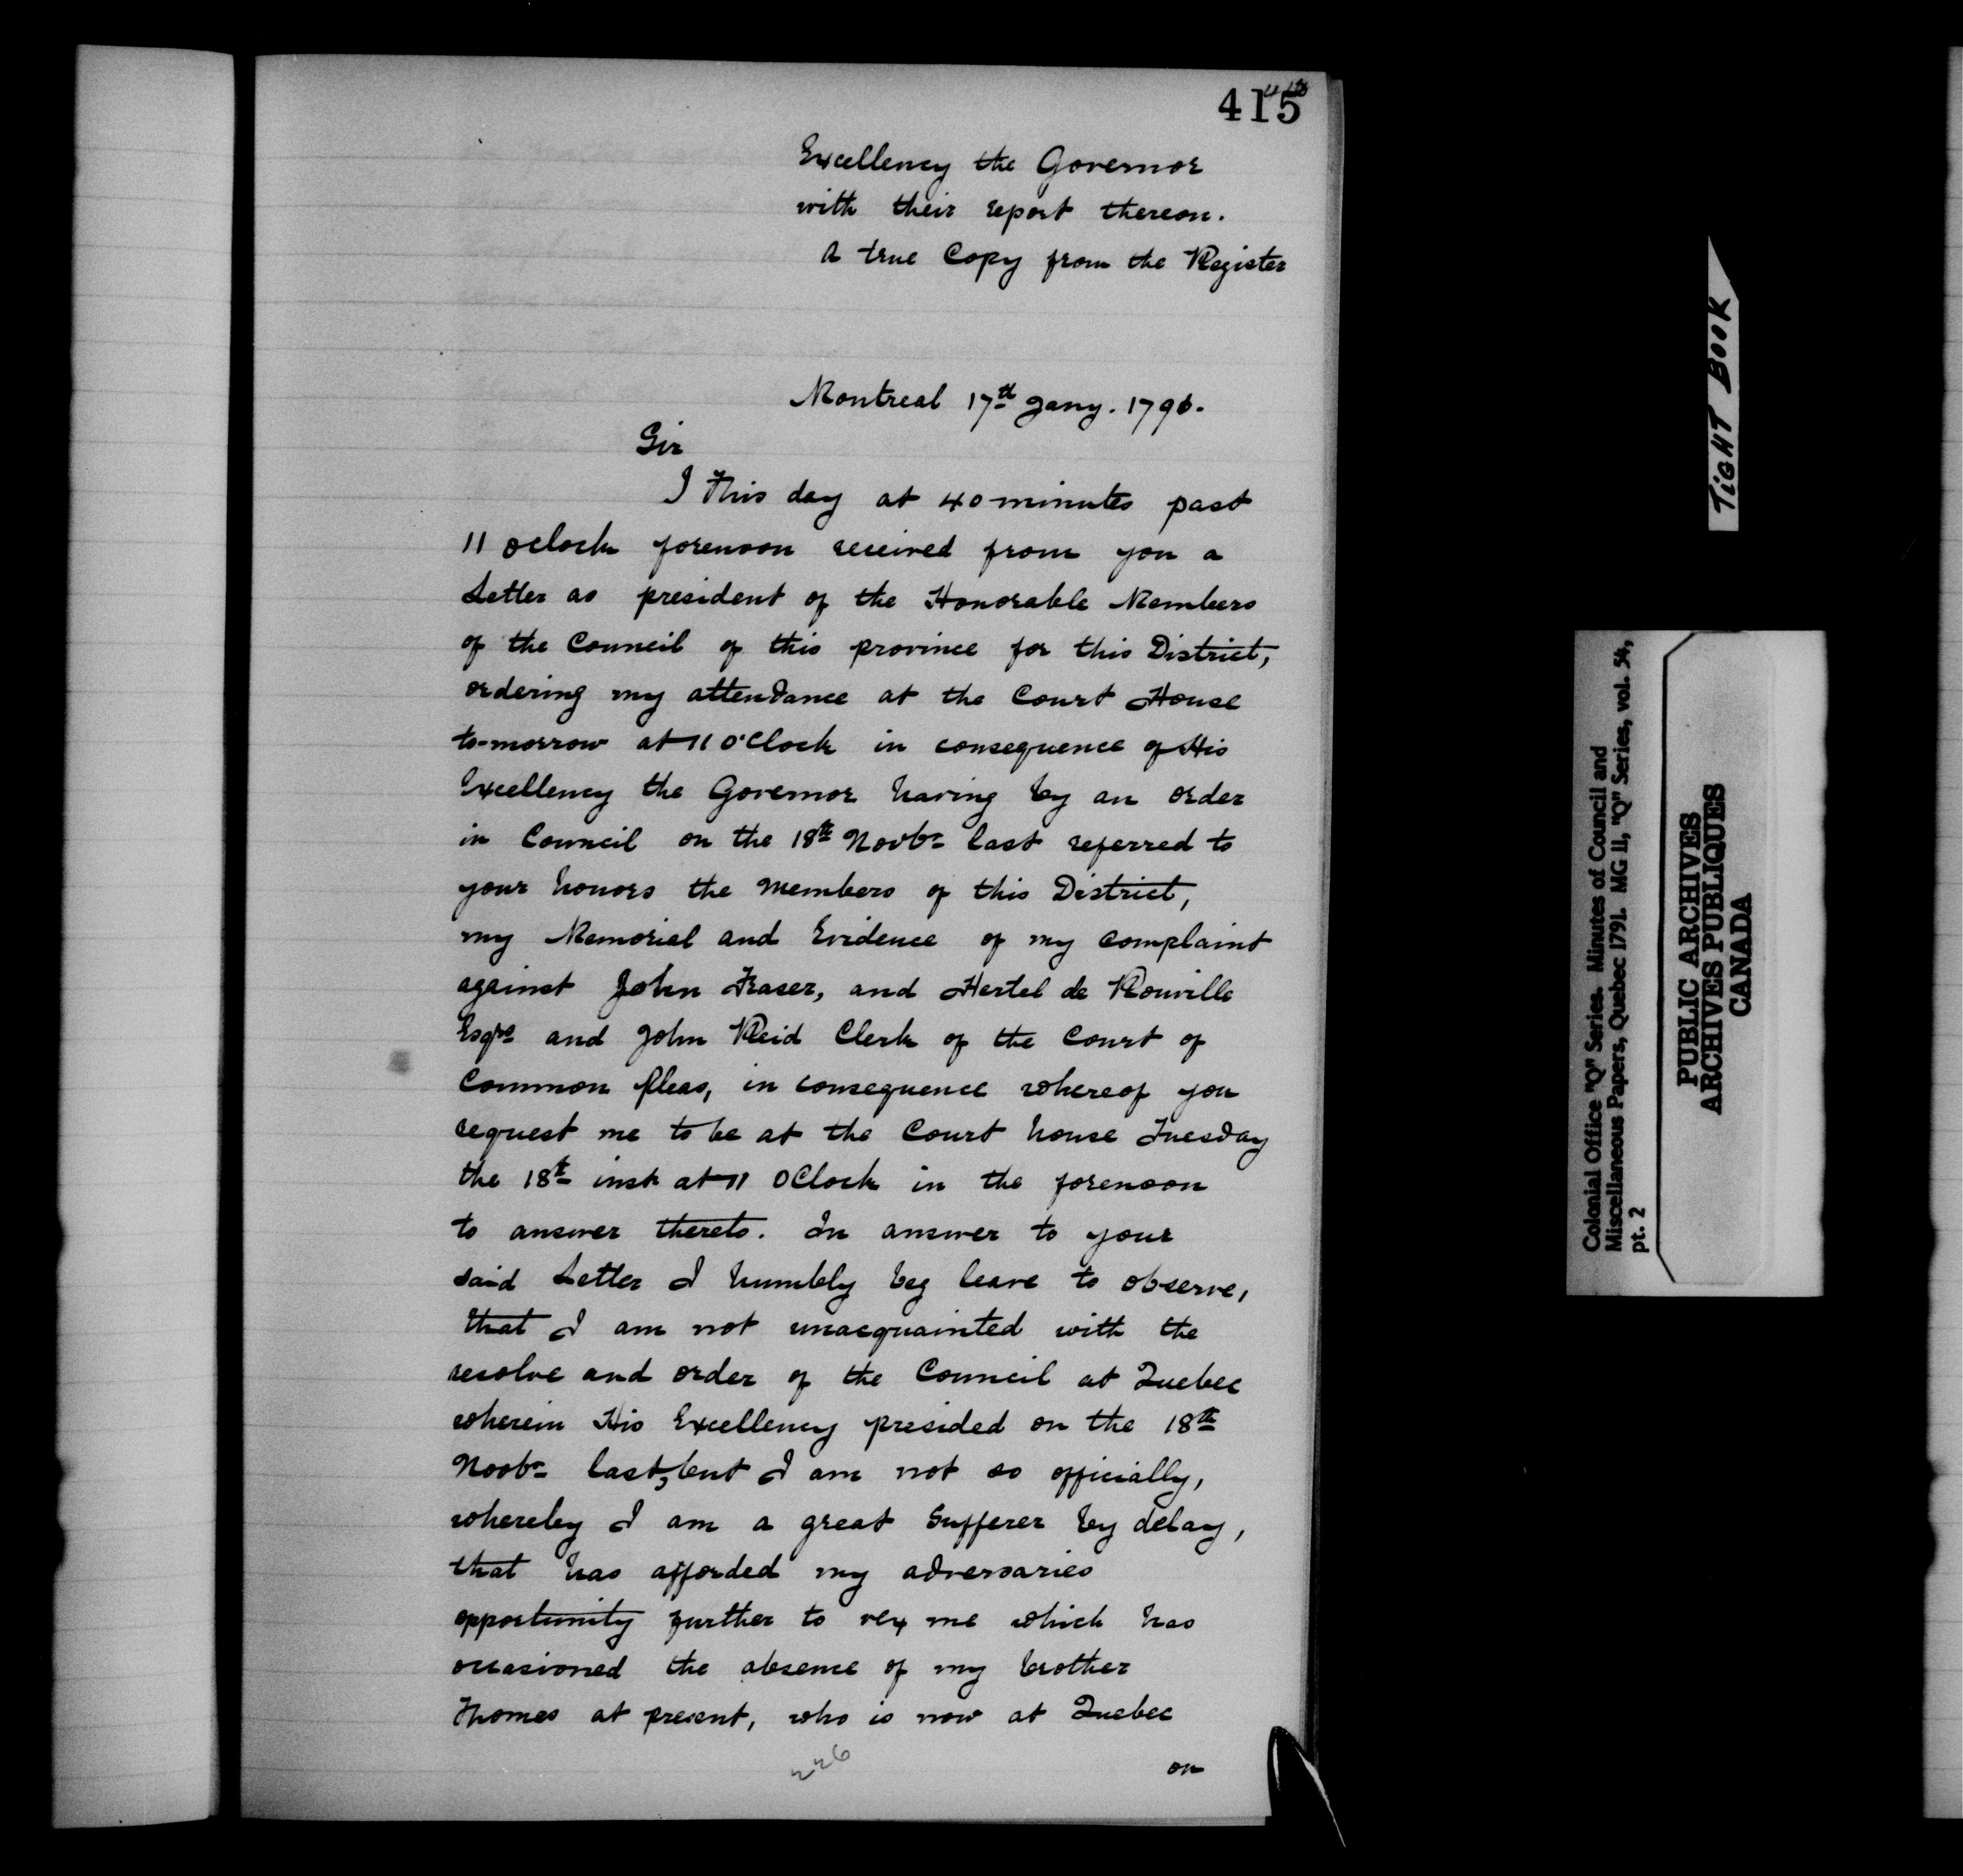 415
Excellency the Governor
with their report thereon.
A true Copy from the Register
Montreal 17th Jany. 1790.
Sir
I This day at 40 minutes past
11 oclock forenoon received from you a
Letter as president of the Honorable Members
of the Council of this province for this District,
ordering my attendance at the Court House
to-morrow at 11 O'Clock in consequence of His
Excellency the Governor having by an order
in Council on the 18th Novbr last referred to
your honors the members of this District,
my Memorial and Evidence of my complaint
against John Fraser, and Hertel de Rouville
Esqrs and John Reid Clerk of the Court of
Common pleas, in consequence whereof you
request me to be at the Court house Tuesday
the 18th inst at 11 OClock in the forenoon
to answer thereto. In answer to your
said Letter I humbly beg leave to observe,
that I am not unacquainted with the
resolve and order of the Council at Quebec
wherein His Excellency presided on the 18th
Novbr last, but I am not so officially,
whereby I am a great Sufferer by delay,
that has afforded my adversaries
opportunity further to vex me which has
occasioned the absence of my brother
Thomas at present, who is now at Quebec
on
226
TIGHT BOOK
Colonial Office "Q" Series. Minutes of Council and
Miscellaneous Papers, Quebec 1791. MG 11, "Q" Series, vol. 54,
pt. 2
PUBLIC ARCHIVES
ARCHIVES PUBLIQUES
CANADA